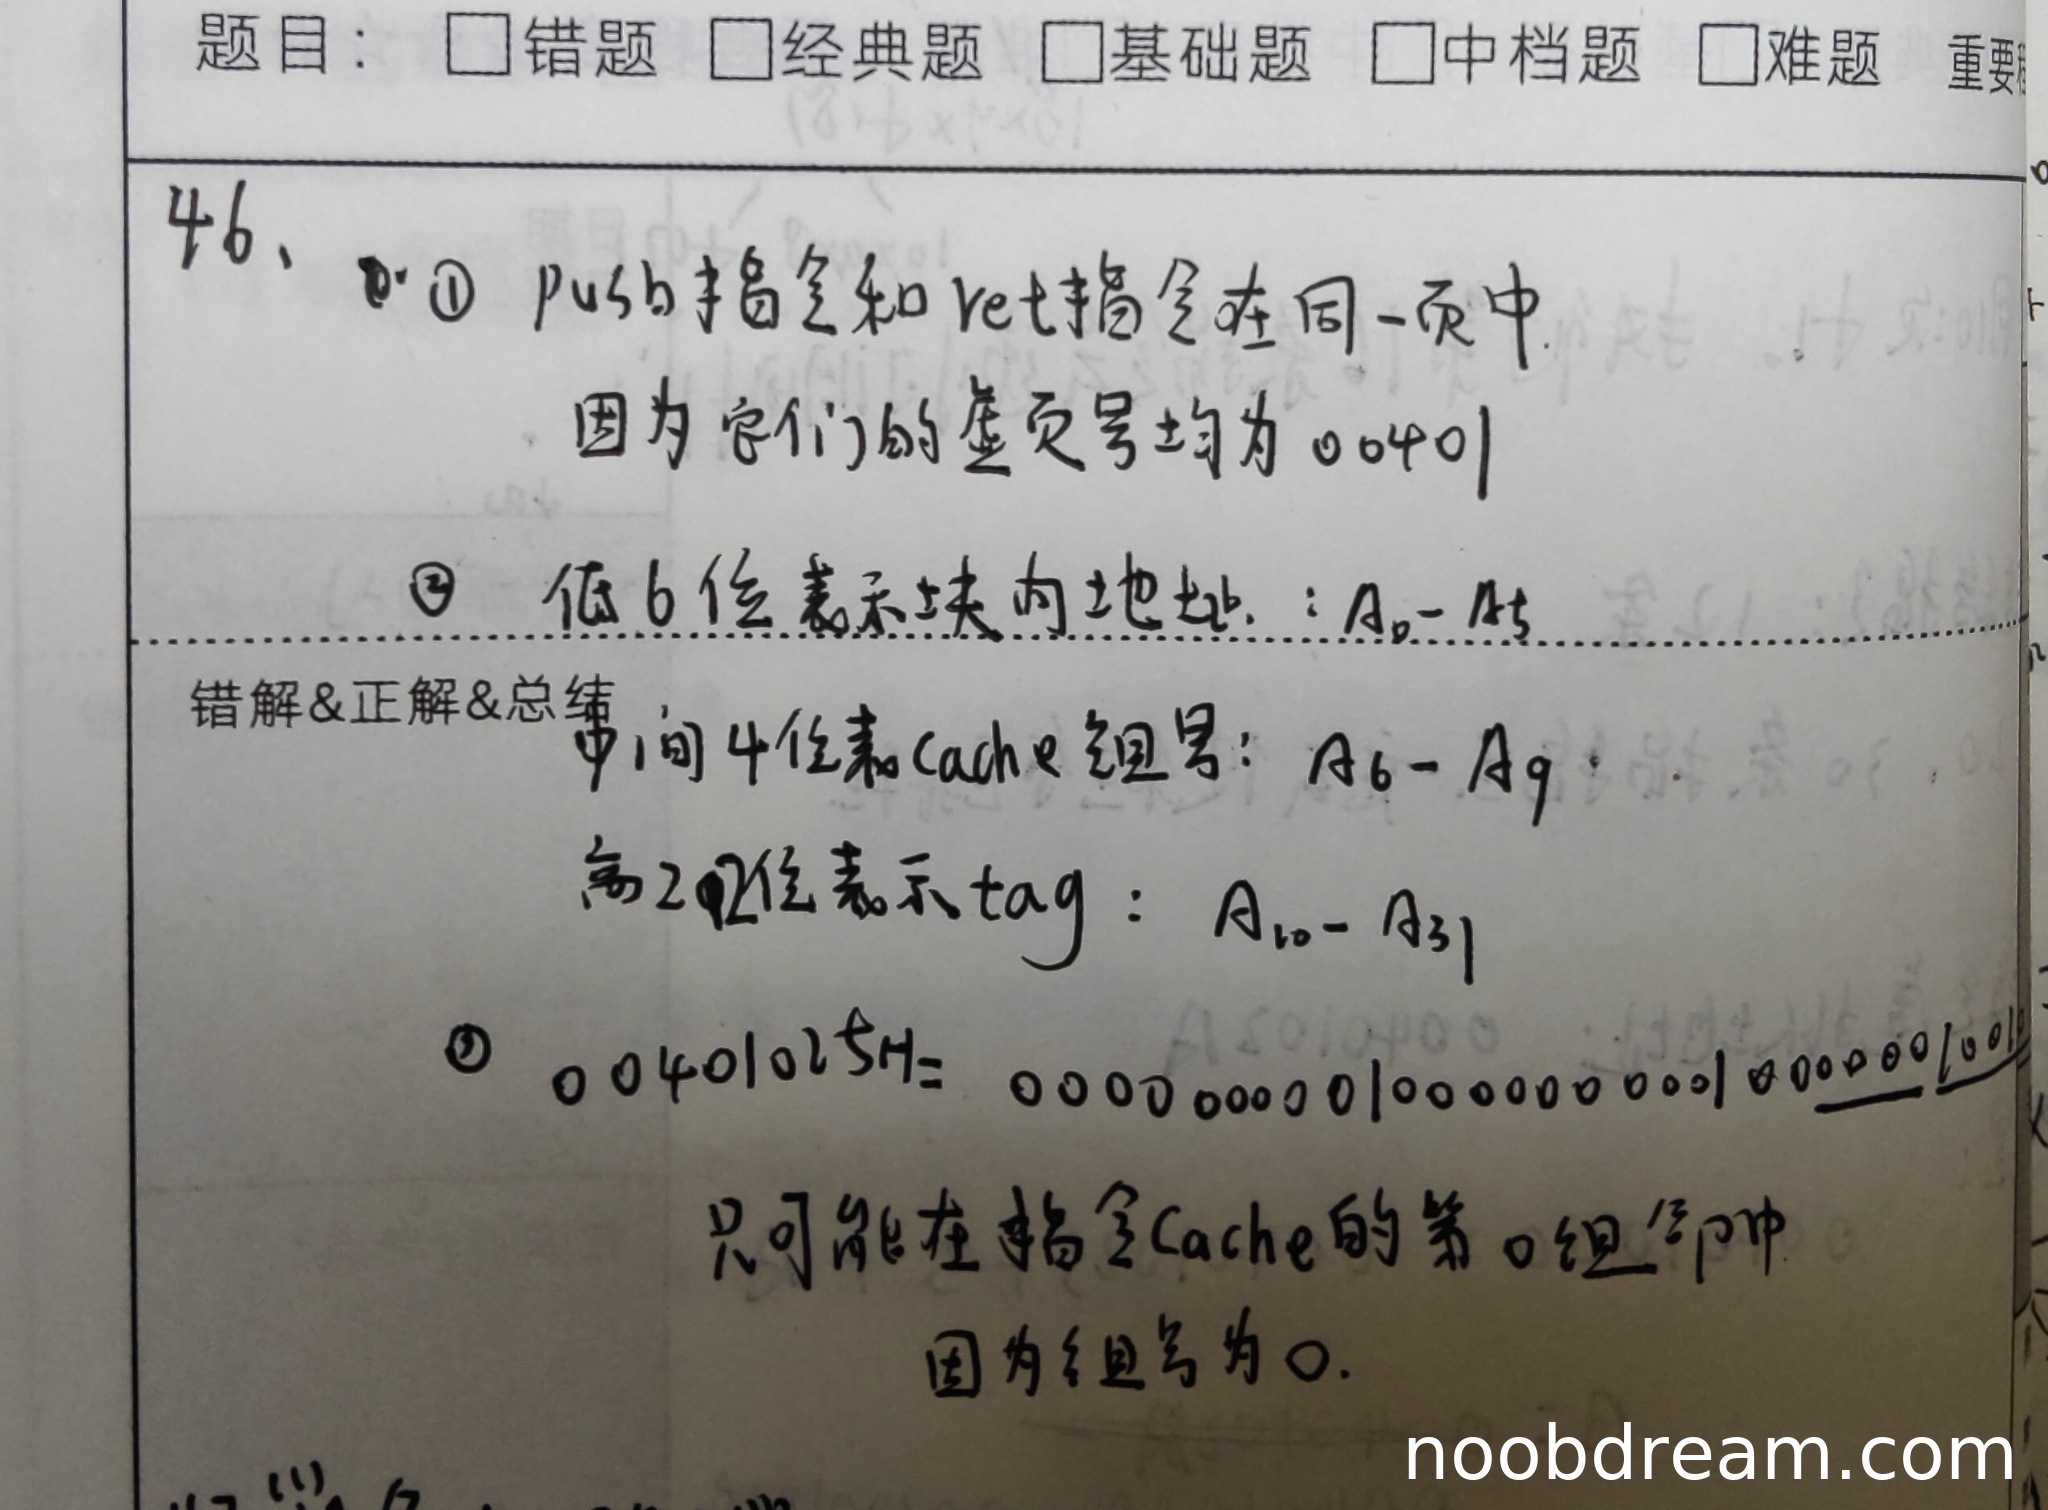 题目: □错题 □经典题 □基础题 □中档题 □难题 重要
46、
① push指令和ret指令在同一页中.
因为它们的虚页号均为00401
② 低6位表示块内地址.: A0-A5
错解&正解&总结
中间4位表cache组号: A6-A9.
高22位表示tag: A10-A31
③ 00401025H= 00000000010000000001000000100101
只可能在指令Cache的第0组命中
因为组号为0.
noobdream.com